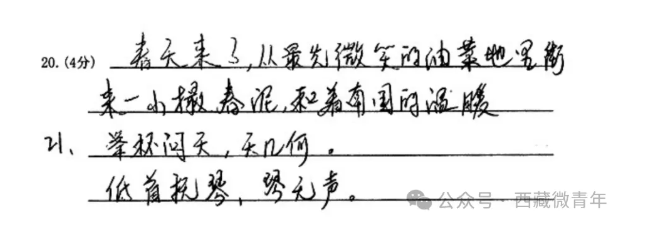 20.(4分) 春天来了,从最先微笑的油菜地里衔
来一小撮春泥,和着南国的温暖
21、举杯问天,天几何。
低首抚琴,琴无声。
公众号·西藏微青年